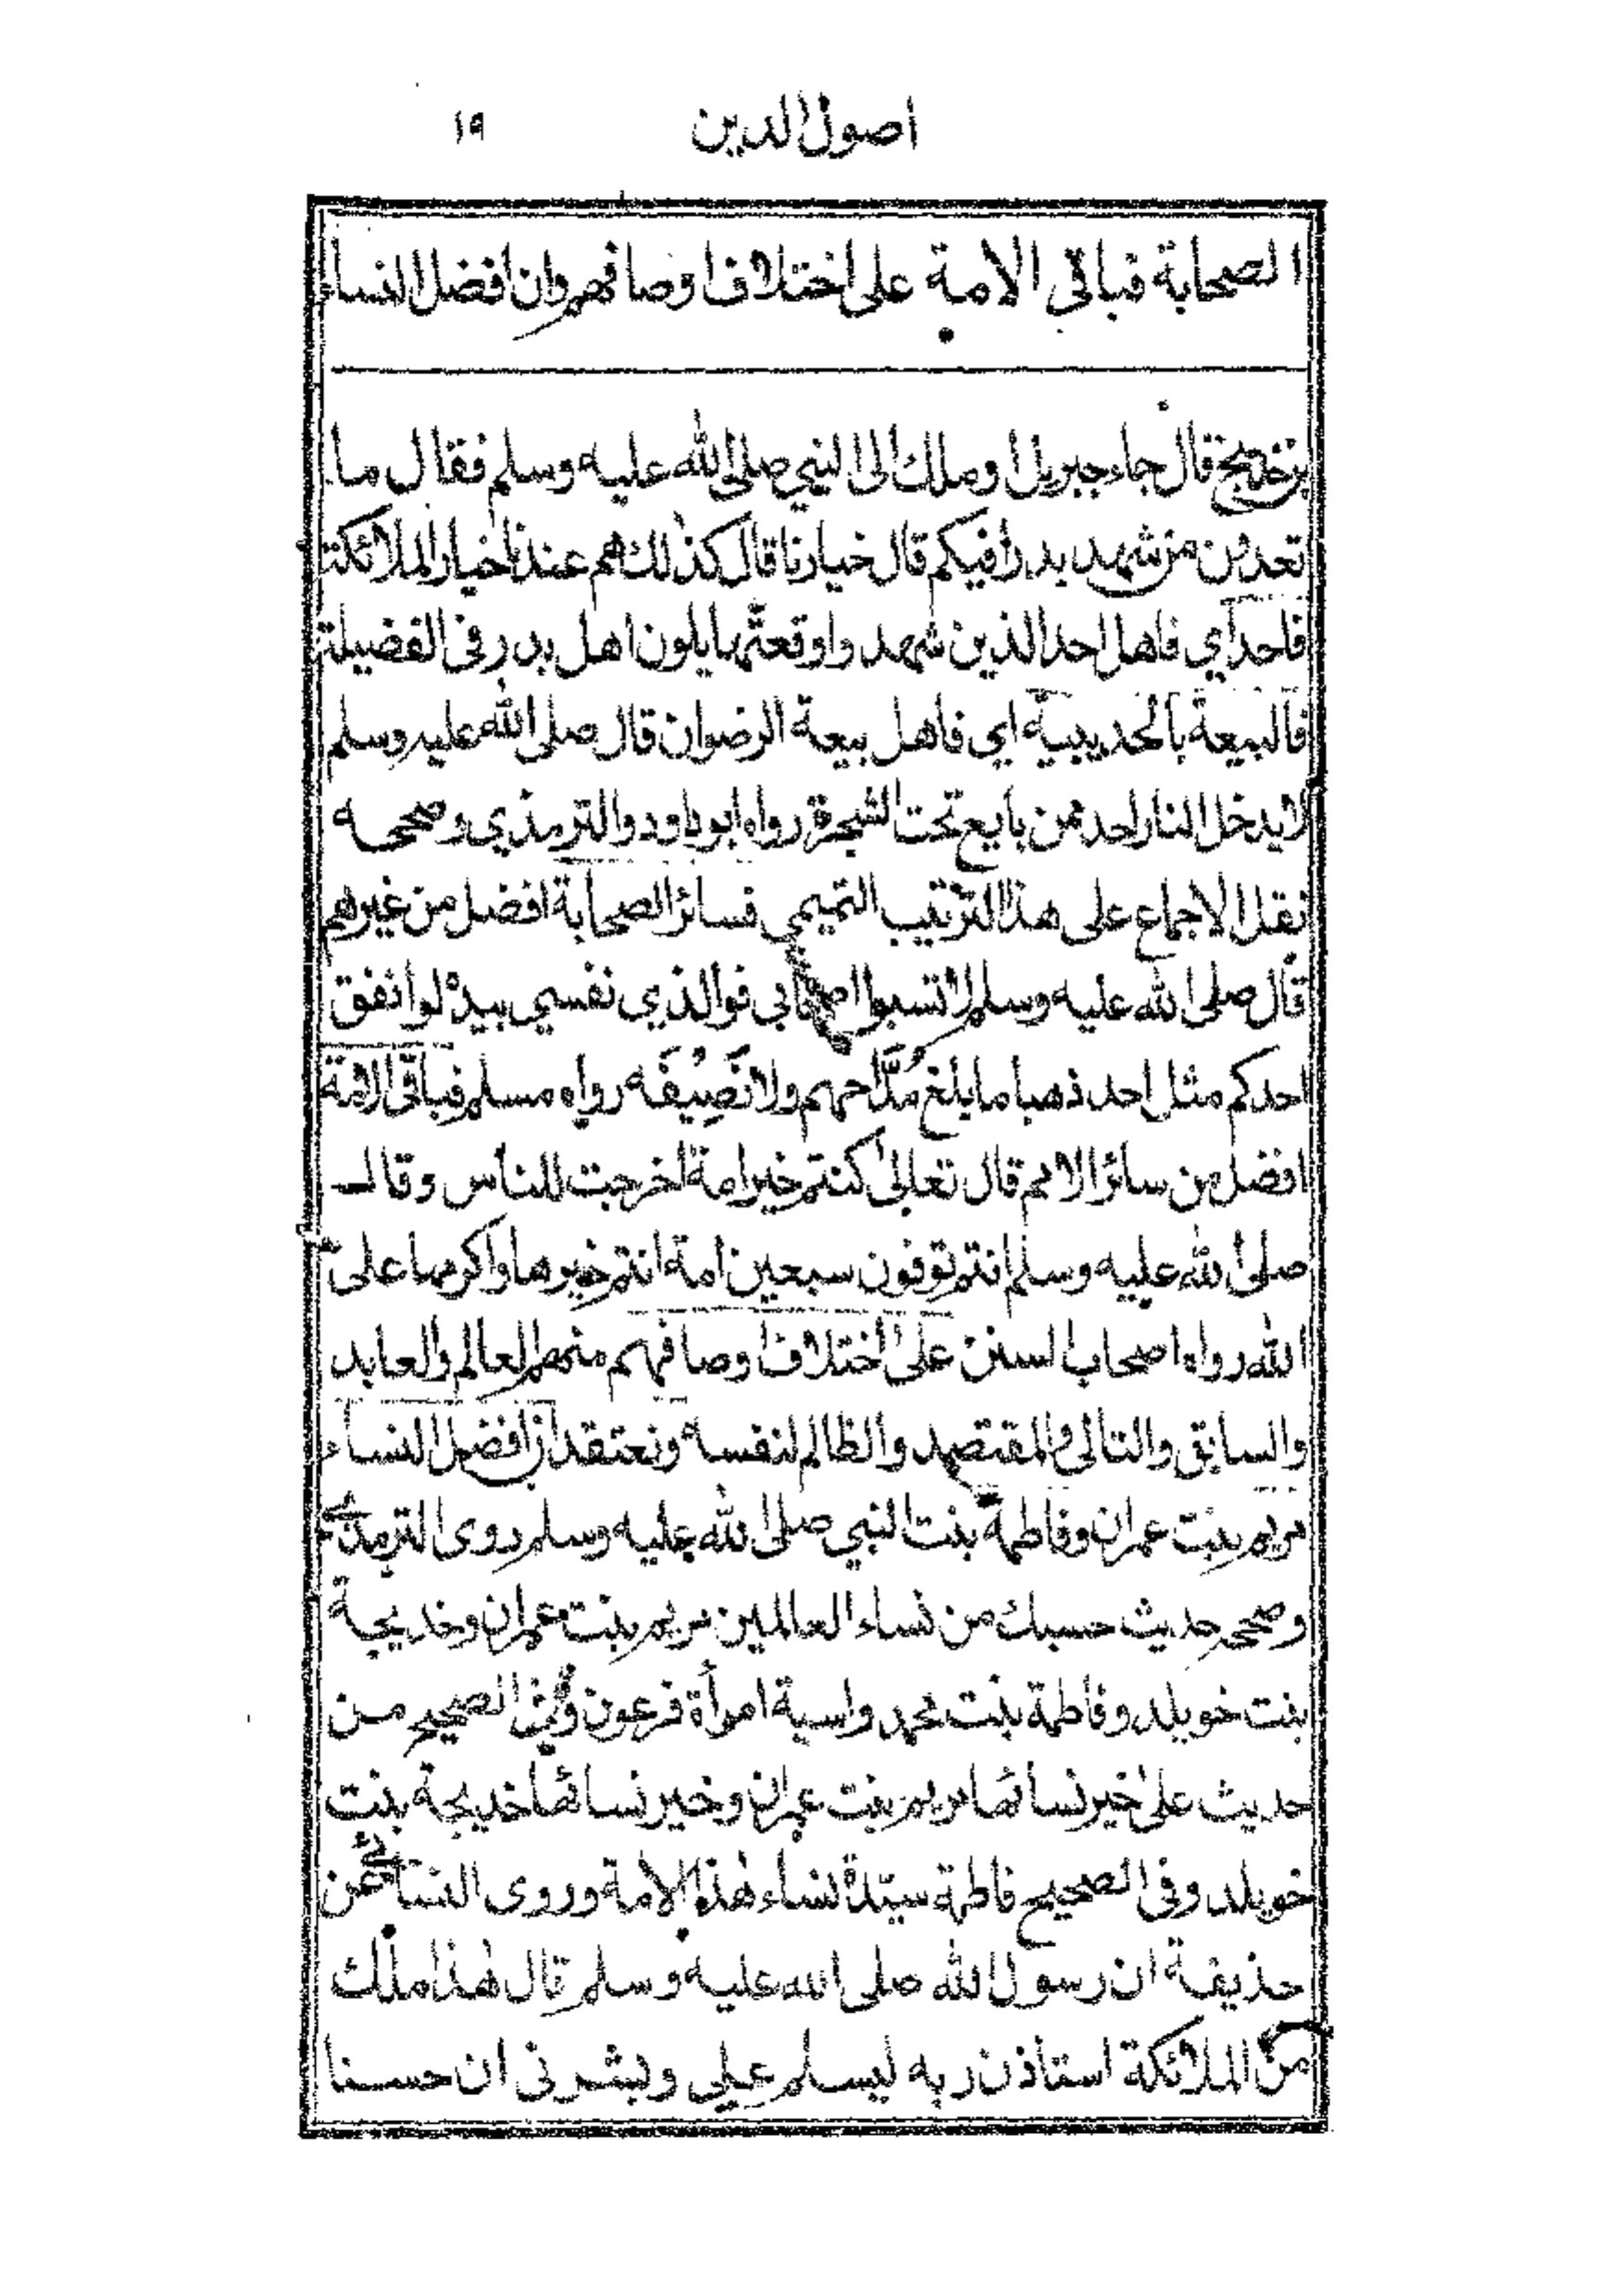 اصول الدين ١٩
الصحابة فباقي الامة على اختلاف اوصافهم وان افضل النساء
بن خديج قال جاء جبريل او ملك الى النبي صلى الله عليه وسلم فقال ما
تعدون من شهد بدرا فيكم قال خيارنا قال كذلك هم عندنا خيار الملائكة
فاحد اي فاهل احد الذين شهدوا وقعتها يلون اهل بدر في الفضيلة
فالبيعة بالحديبية اي فاهل بيعة الرضوان قال صلى الله عليه وسلم
لا يدخل النار احد ممن بايع تحت الشجرة رواه ابو داود والترمذي وصححه
نقل الاجماع على هذا الترتيب التميمي فسائر الصحابة افضل من غيرهم
قال صلى الله عليه وسلم لا تسبوا اصحابي فوالذي نفسي بيده لو انفق
احدكم مثل احد ذهبا ما يبلغ مُدَّ احدهم ولا نَصِيفَه رواه مسلم فباقي الامة
افضل من سائر الامم قال تعالى كنتم خير امة اخرجت للناس وقال
صلى الله عليه وسلم انتم توفون سبعين امة انتم خيرها واكرمها على
الله رواه اصحاب السنن على اختلاف اوصافهم منهم العالم والعابد
والسابق والتالي والمقتصد والظالم لنفسه ونعتقد ان افضل النساء
مريم بنت عمران وفاطمة بنت النبي صلى الله عليه وسلم روى الترمذي
وصححه حديث حسبك من نساء العالمين مريم بنت عمران وخديجة
بنت خويلد وفاطمة بنت محمد واسية امرأة فرعون وفي الصحيح من
حديث على خير نسائها مريم بنت عمران وخير نسائها خديجة بنت
خويلد وفي الصحيح فاطمة سيّدة نساء هذه الامة وروى النسائي عن
حذيفة ان رسول الله صلى الله عليه وسلم قال هذا ملك
من الملائكة استاذن ربه ليسلم علي وبشرني ان حسنا